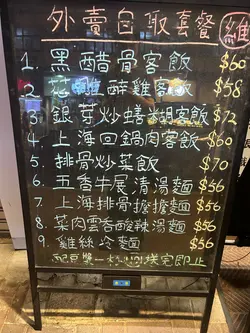 外賣自取套餐 維
1. 黑醋骨客飯 $60
2. 花雕醉雞客飯 $58
3. 銀芽炒鱔糊客飯 $72
4. 上海回鍋肉客飯 $60
5. 排骨炒菜飯 $70
6. 五香牛展清湯麵 $56
7. 上海排骨擔擔麵 $56
8. 菜肉雲吞酸辣湯麵 $56
9. 雞絲冷麵 $56
配豆漿一 送完即止